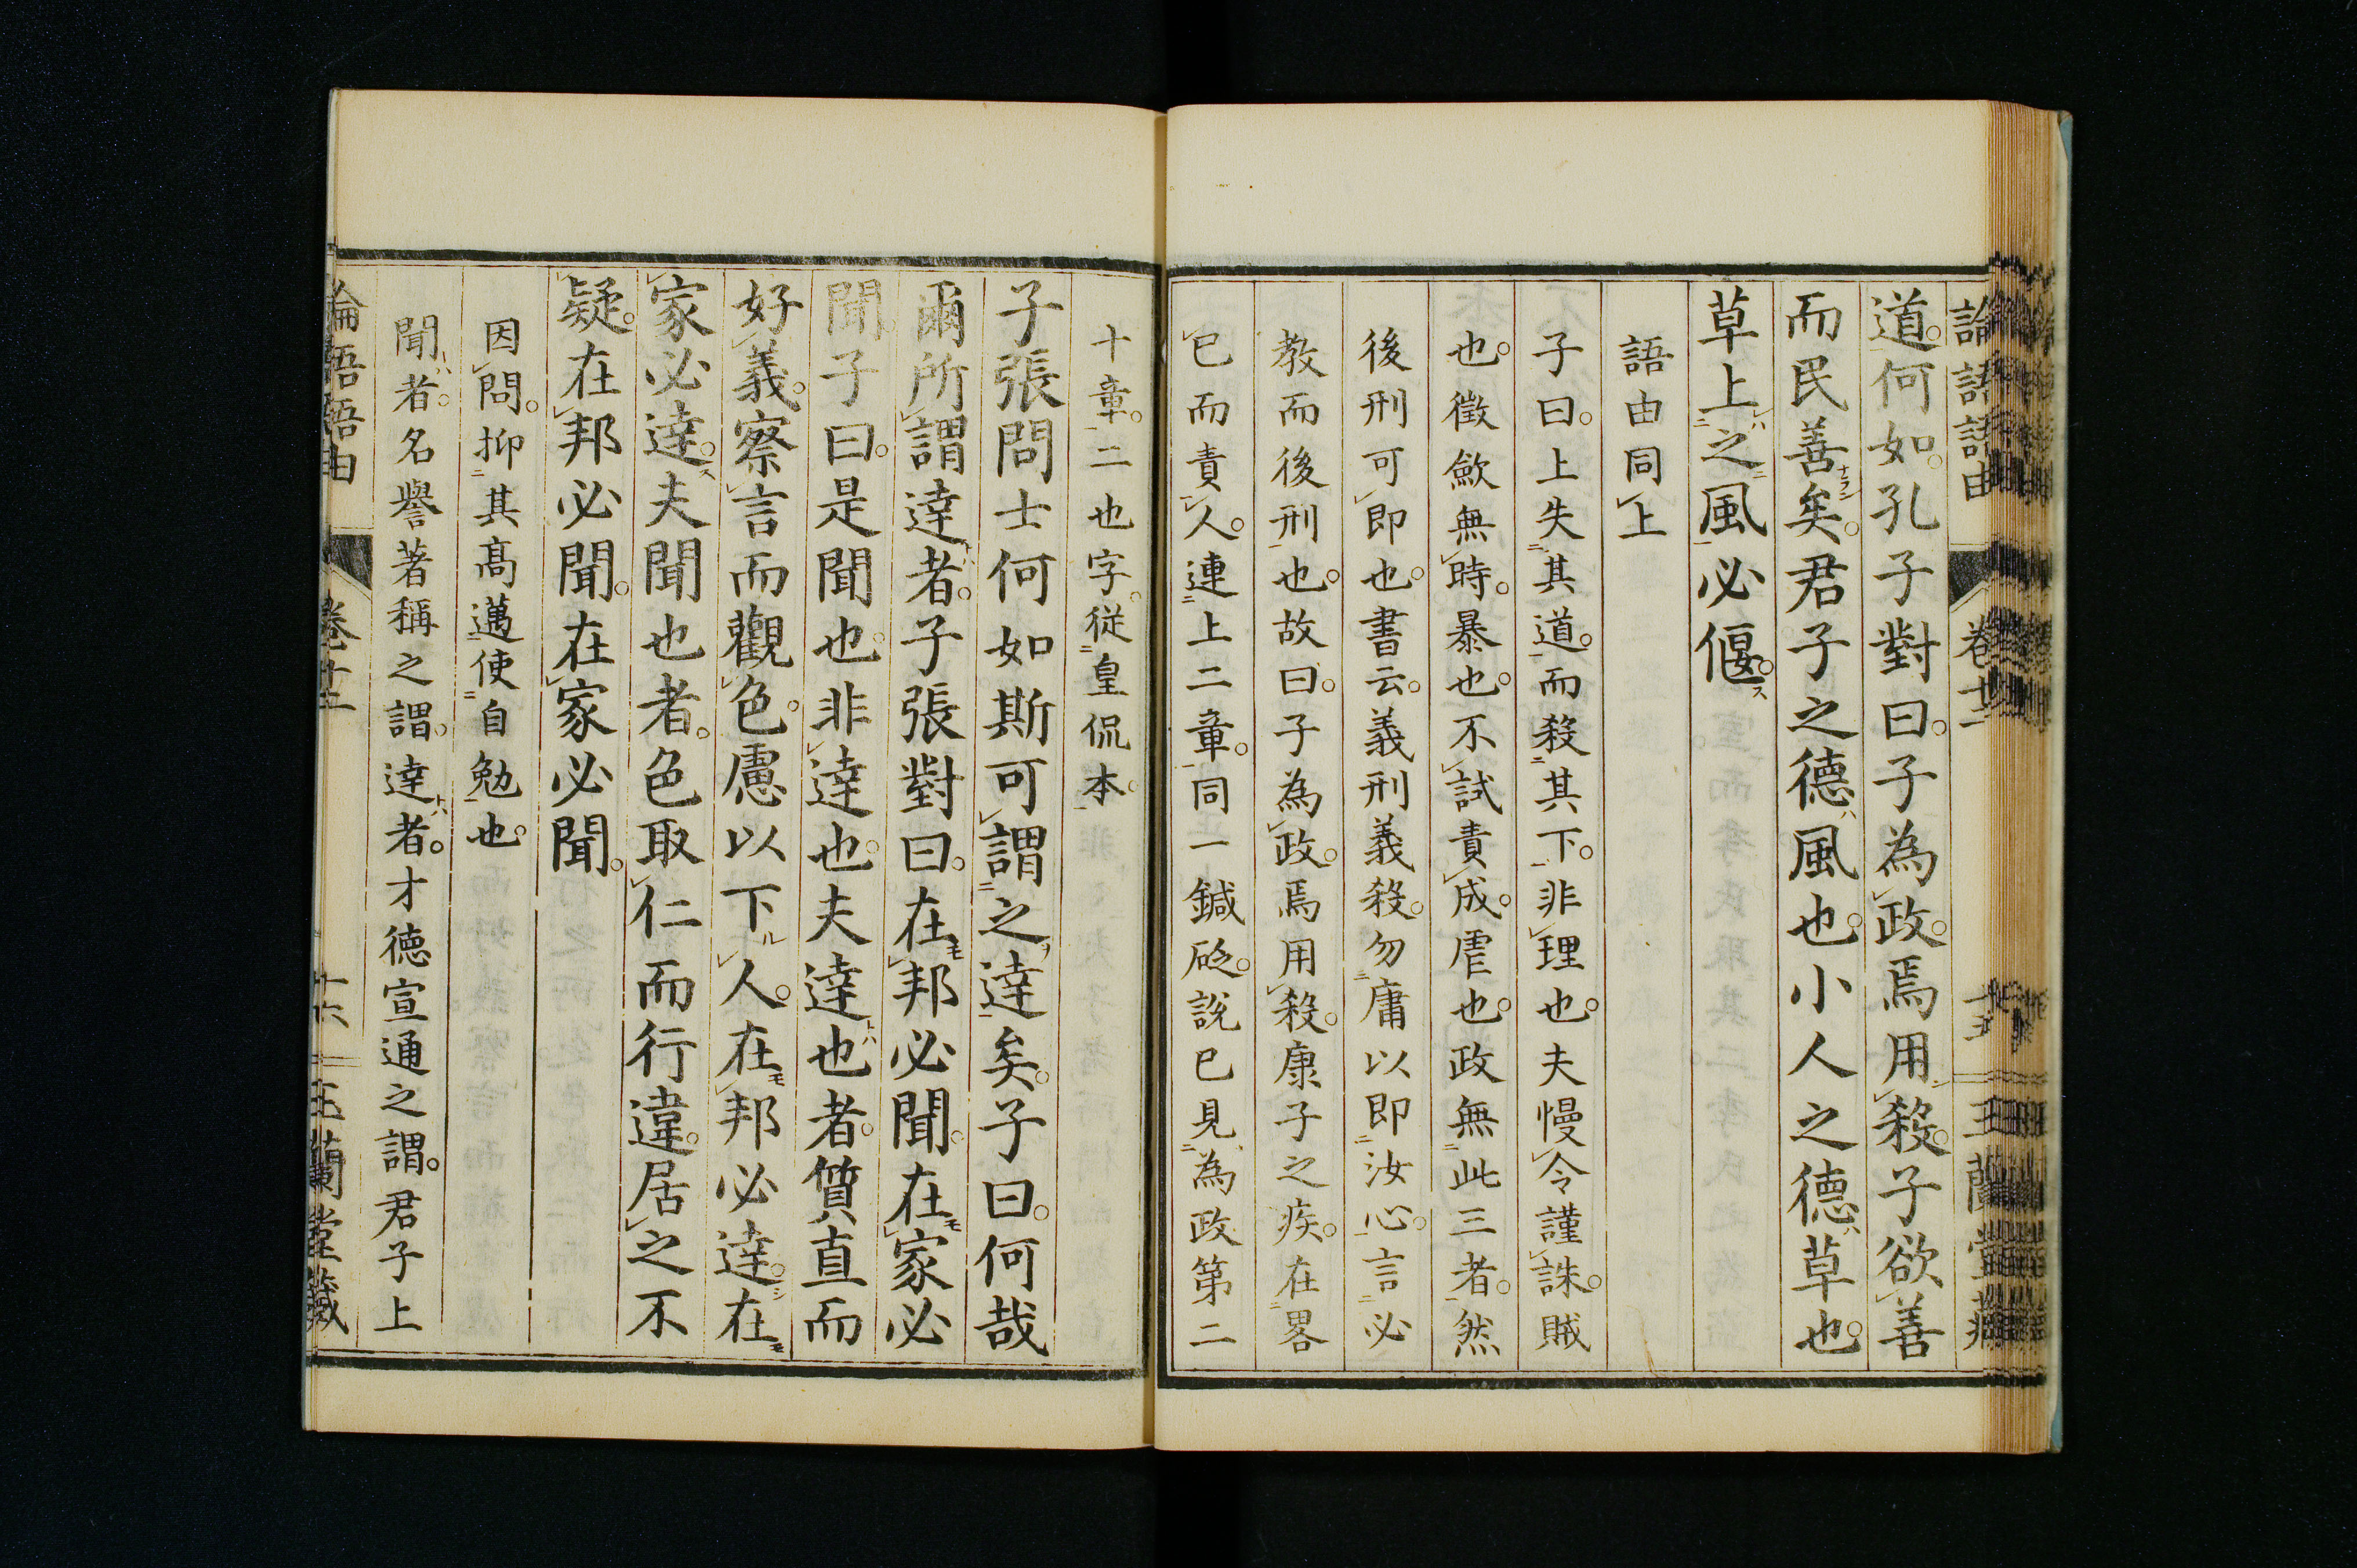 論語語由 卷十二 十五 玉蘭堂藏
道。何如。孔子對曰。子為政。焉用殺。子欲善
而民善矣。君子之德風也。小人之德草也。
草上之風必偃。
語由同上
子曰。上失其道。而殺其下。非理也。夫慢令謹誅。賊
也。徵歛無時。暴也。不試責成。虐也。政無此三者。然
後刑可即也。書云。義刑義殺。勿庸以即汝心。言必
教而後刑也。故曰。子為政。焉用殺。康子之疾。在畧
已而責人。連上二章。同一鍼砭。說已見為政第二
十章。二也字。従皇侃本。
子張問士何如斯可謂之達矣。子曰。何哉
爾所謂達者。子張對曰。在邦必聞。在家必
聞。子曰。是聞也。非達也。夫達也者。質直而
好義。察言而觀色。慮以下人。在邦必達。在
家必達。夫聞也者。色取仁而行違。居之不
疑。在邦必聞。在家必聞。
因問。抑其高邁使自勉也。
聞者。名譽著稱之謂。達者。才德宣通之謂。君子上
論語語由 卷十二 十六 玉蘭堂藏